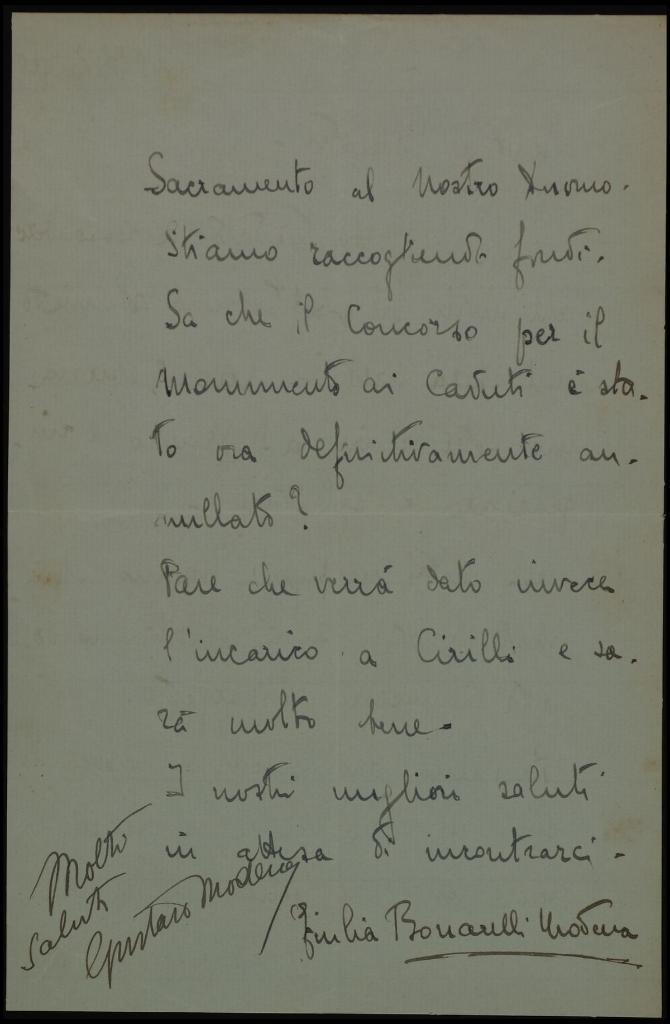 Sacramento al Nostro Duomo.
Stiamo raccogliendo fondi.
Sa che il Concorso per il
Monumento ai Caduti è sta-
to ora definitivamente an-
nullato?
Pare che verrà dato invece
l'incarico a Cirilli e sa-
rà molto bene.
I nostri migliori saluti
in attesa di incontrarci -
Giulia Bonarelli Modena
Molti
saluti
Gustavo Modena